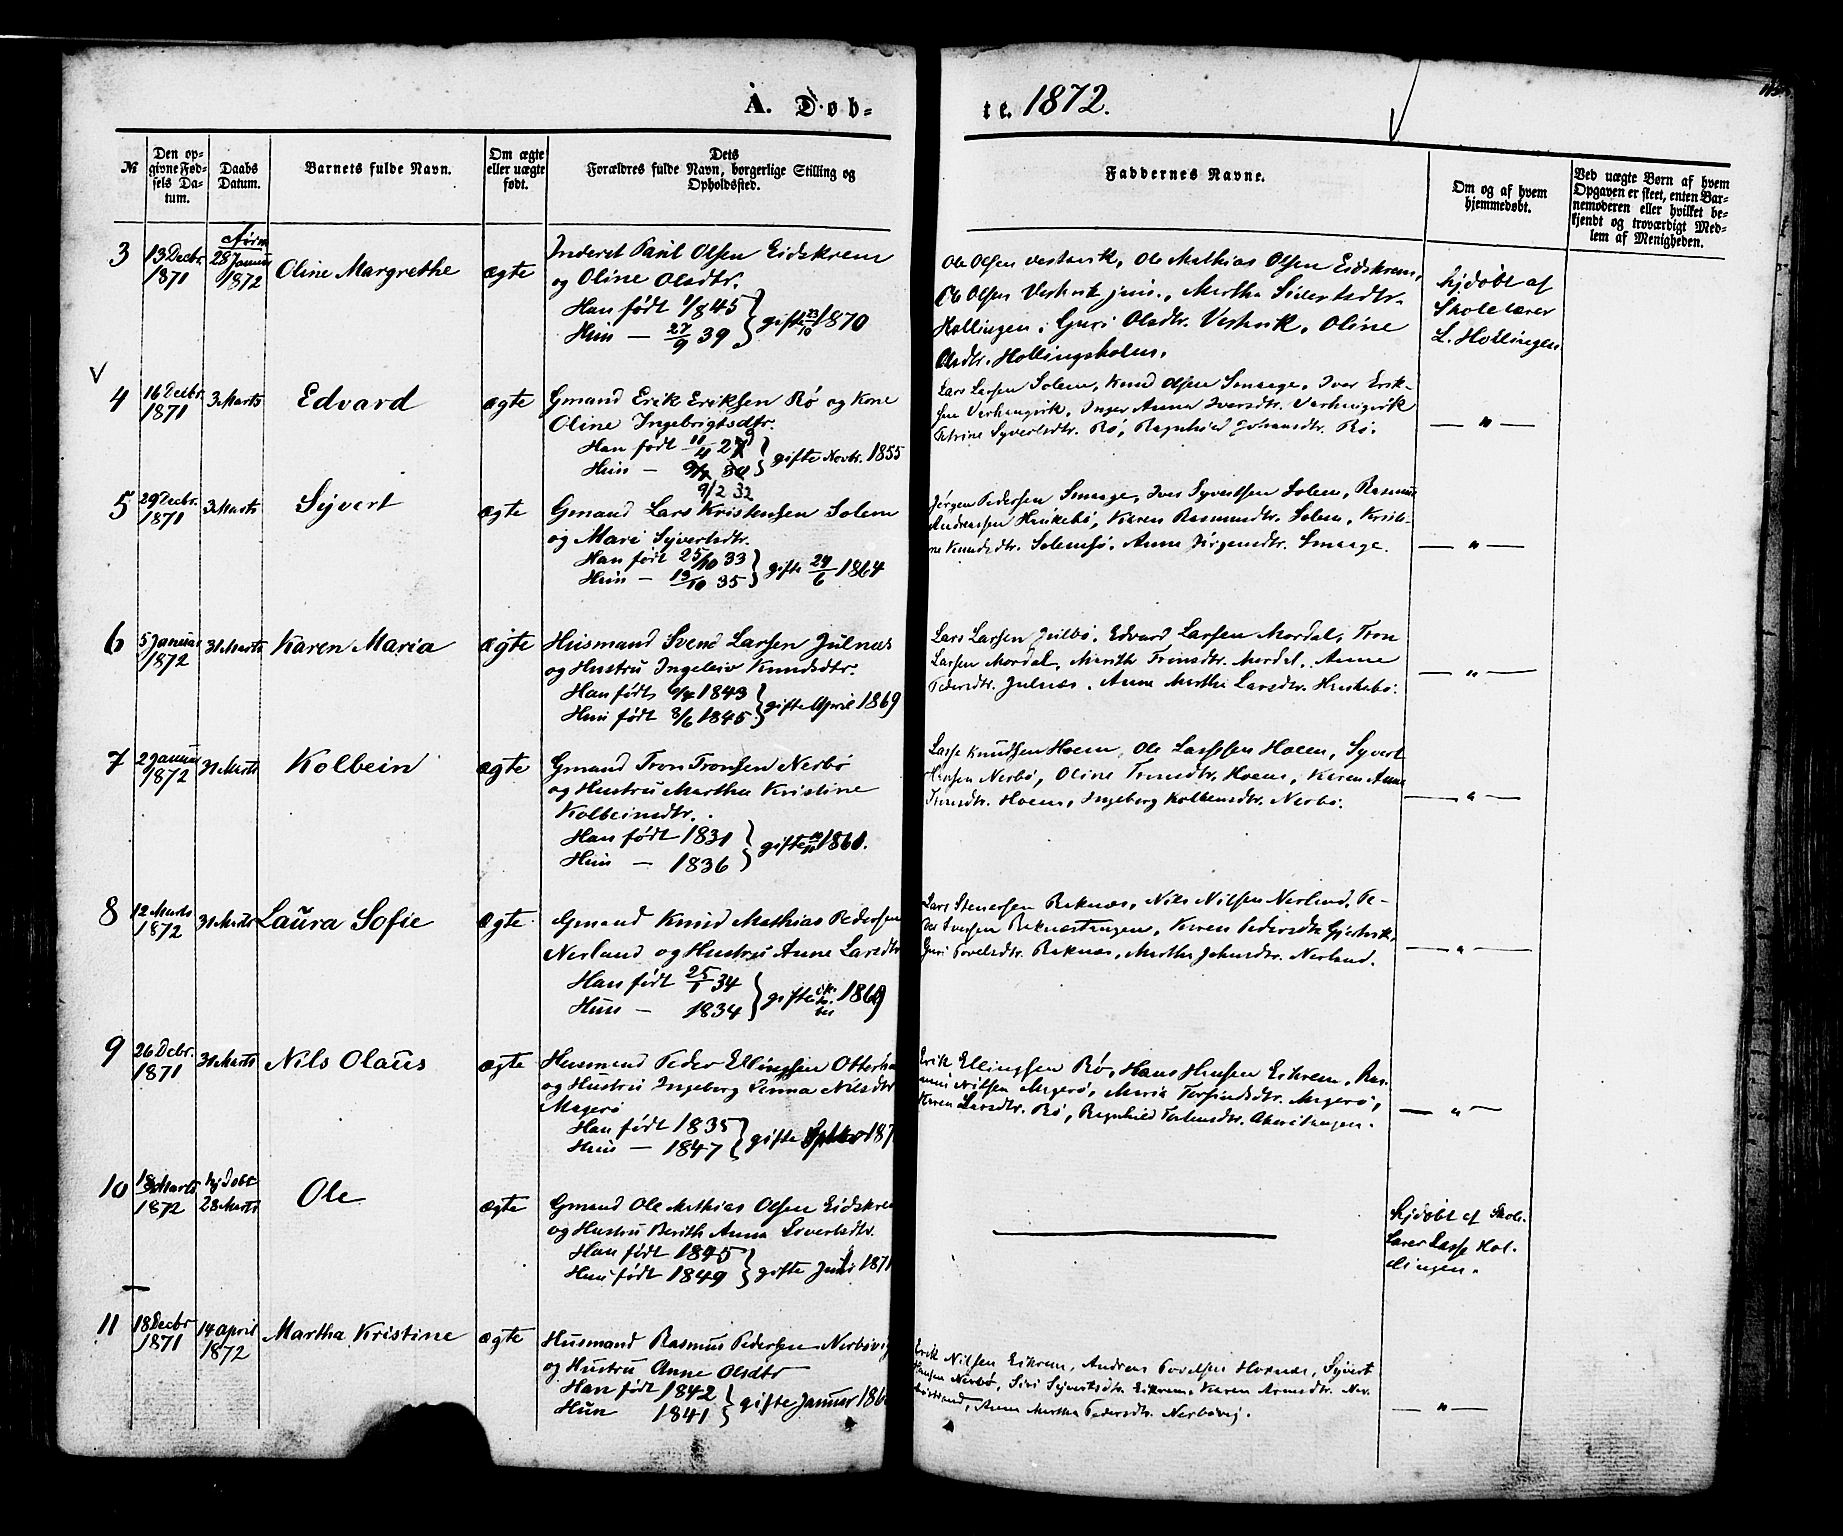 A. Døb-
te. 1872.
№
Den op-
givne Fød-
sels Da-
tum.
Daabs
Datum.
Barnets fulde Navn.
Om ægte
eller uægte
født.
Dets
Forældres fulde Navn, borgerlige Stilling og
Opholdssted.
Faddernes Navne.
Om og af hvem
hjemmedøbt.
Ved uægte Børn af hvem
Opgaven er skeet, enten Bar-
nemoderen eller hvilket be-
kjendt og troværdigt Med-
lem af Menigheden.
3
13 Decbr.
1871
28 Januar
1872
Oline Margrethe
ægte
Inderst Paul Olsen Eidskrem
og Oline Olsdtr.
Han født 1/8 45
Hun — 27/9 39
gifte 23/10 1870
Ole Olsen Vestavik, Ole Mathias Olsen Eidskrem,
Ole Olsen Vestavik jun., Martha Sivertsdtr.
Hollingen, Guri Olsdtr. Vestvik, Oline
Olsdtr. Hollingsholm.
hjdøbt af
Skolelærer
L. Hollingen
4
16 Decbr.
1871
3 Marts
Edvard
ægte
Gmand Erik Eriksen Rø og Kone
Oline Ingebrigtsdtr.
Han født 11/4 27
Hun —
9/2 32
gifte Novbr. 1855
Lars Larsen Solem, Knud Olsen Smaage, Iver Erik-
sen Varhaugvik, Inger Anna Iversdtr. Varhaugvik
Petrine Syvertsdtr. Rø, Ragnhild Johansdtr. Rø.
— " —
5
29 Decbr.
1871
3 Marts
Syvert
ægte
Gmand Lars Kristensen Solem
og Mari Syvertsdtr.
Han født 25/10 33
Hun — 13/10 35
gifte 24/6 1864
Jørgen Pedersen Smaage, Iver Syvertsen Solem, Rasmus
Andreassen Huskebø, Karen Rasmusdtr. Solem, Kristi-
ne Knudsdtr. Solemsø, Anne Jørgensdtr. Smaage.
— " —
6
5 Januar
1872
31 Marts
Karen Maria
ægte
Husmand Svend Larsen Julnæs
og Hustru Ingeleiv Knudsdtr.
Han født 1843
Hun født 8/6 1845
gifte April 1869
Lars Larsen Julbø, Edvard Larsen Mordal, Tron
Larsen Mordal, Marith Tronsdtr. Mordal, Anne
Pedersdtr. Julnæs, Anne Martha Larsdtr. Huskebø.
— " —
7
2 Januar
1872
31 Marts
Kolbein
ægte
Gmand Tron Tronsen Nerbø
og Hustru Martha Kristine
Kolbeinsdtr.
Han født 1831
Hun — 1836
gifte 1861.
Lasse Knudsen Hoem, Ole Larssen Hoem, Syvert
Hansen Nerbø, Oline Tronsdtr. Hoem, Karen Anne
Tronsdtr. Hoem, Ingeborg Kolbensdtr. Nerbø.
— " —
8
12 Marts
1872
31 Marts
Laura Sofie
ægte
Gmand Knud Mathias Pedersen
Nerland og Hustru Anne Larsdtr
Han født 25/1 34
Hun — 1834
gifte
Lars Steversen Reknæs, Nils Nilsen Nerland, Pe-
der Iversen Reknæstangen, Karen Pedersdtr. Gjertvik,
Guri Povelsdtr. Reknæs, Martha Johnsdtr. Nerland.
— " —
9
26 Decbr.
1871
31 Marts
Nils Olaus
ægte
Husmand Peder Ellingsen
og Hustru Ingeborg Nilsdtr
Magerø
Han født 1835
Hun — 1847
gifte
Erik Ellingsen Rø, Hans Hansen Eikrem, Ras-
mus Nilsen Magerø, Maria Torsindsdtr. Magerø,
Karen Larsdtr. Rø, Ragnhild
— " —
10
18 Marts
1872
hjdøbt
28 Marts
Ole
ægte
Gmand Ole Mathias Olsen Eidskrem
og Hustru Berith Anna Sivertsdtr.
Han født 1845
Hun født 1849
gifte Juni 1871
hjdøbt af Skole-
lærer Lasse Hol-
lingen.
11
18 Decbr
1871
14 April
1872
Martha Kristine
ægte
Husmand Rasmus Pedersen Nerbøvig
og Hustru Anne Olsdtr
Han født 1842
Hun 1841
gifte Januar
Erik Nilsen Eikrem, Andreas Povelsen Hoxnæs, Syvert
Hansen Nerbø, Siri Syvertsdtr. Eikrem, Karen Arnesdtr. Ner-
bøstrand, Anne Martha Pedersdtr. Nerbøvig.
— " —